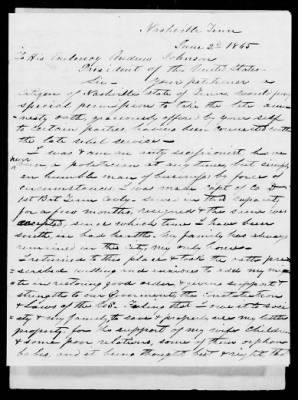 Nashville Tenn
June 2d 1865
To His Excelency Andrew Johnson
President of the United States
Sir - Your petitioner a
citizen of Nashville State of Tenn would for
special permission to take the late am-
nesty oath, graciously offered by your self
to certain parties having been connected with
the late rebel service -
I was born in city secessionist have
never been a politician at any time, but simply
an humble man of business by force of
circumstances I was made Capt of Co D
1st Bat Tenn Cavly - served in that capacity
for a few months, resigned & the same was
accepted, since which time I have been
south, in bad health, my family has always
remained in this City, my only home -
I returned to this place & took the oath pre-
scribed willing and anxious to add my mite
in restoring good order & give support &
strength to our Government, the Constitution
& Laws of the U.S. Feeling that I owe it to soci-
ety & my family to save & properly use my little
property for the support of my wife Children
& some poor relations, some of them orphan
babes, and it being thought best & right that